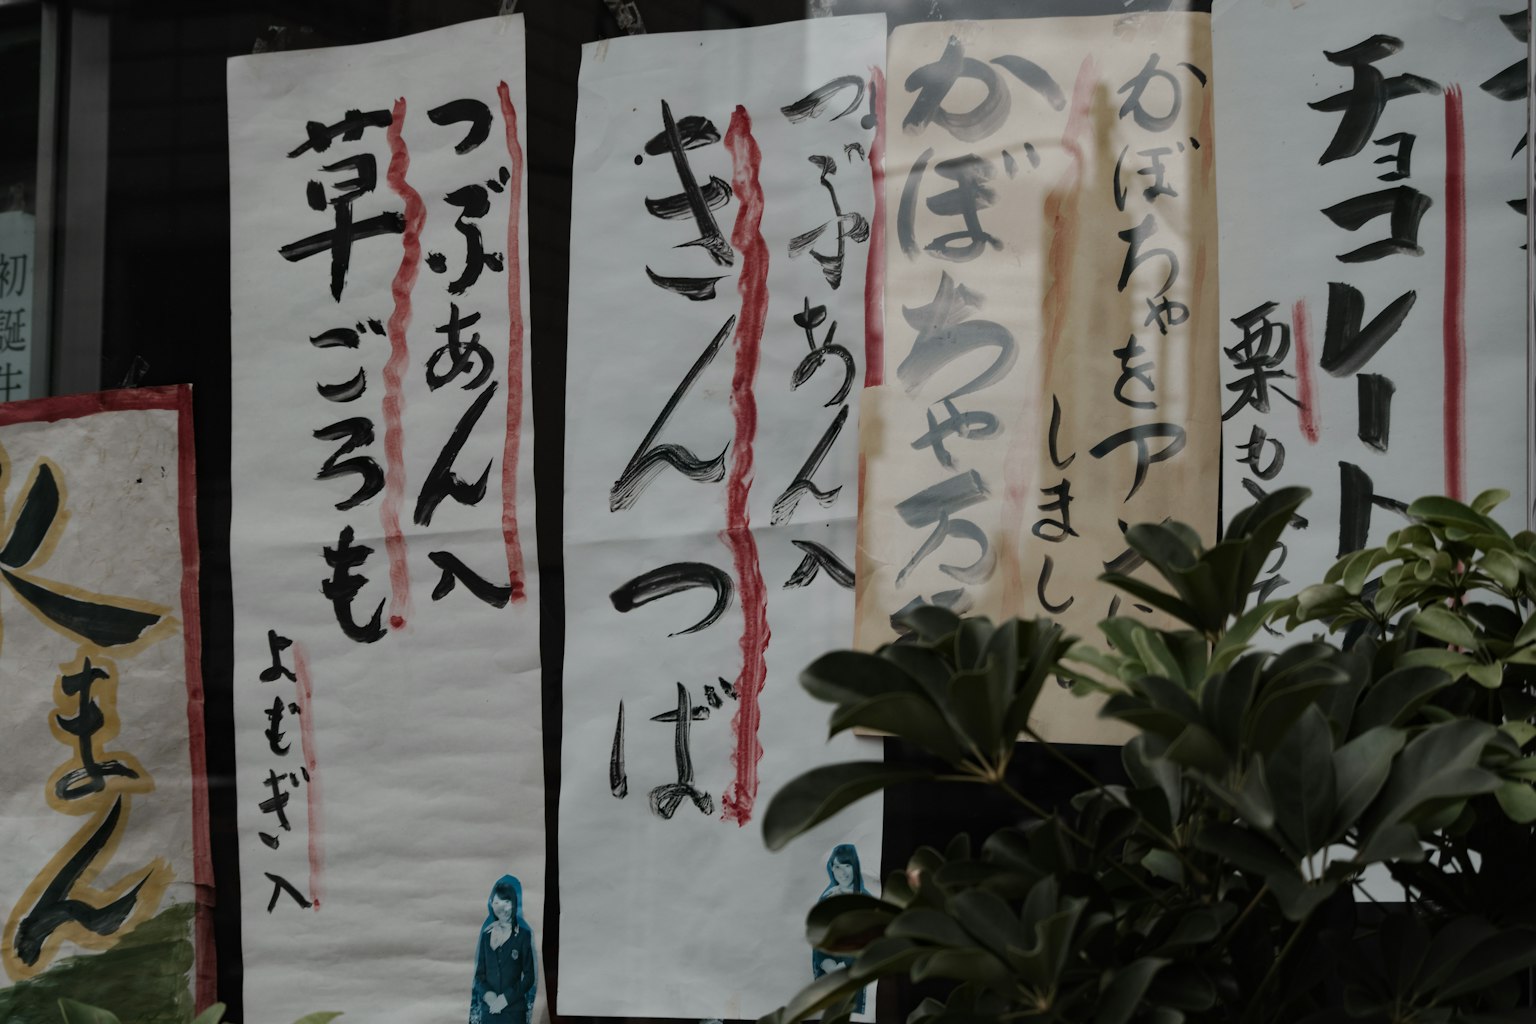 チョコレート
栗もって
かぼちゃをア
しまし
かぼちゃ万
つぶあん入
きんつば
つぶあん入
草ごろも
よもぎ入
まん
初誕生